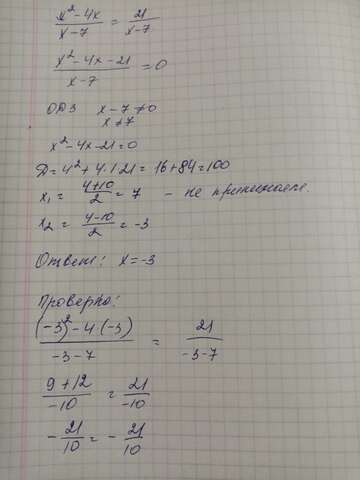 (x² - 4x)/(x - 7) = 21/(x - 7)
(x² - 4x - 21)/(x - 7) = 0
ОДЗ x - 7 ≠ 0
x ≠ 7
x² - 4x - 21 = 0
D = 4² + 4·1·21 = 16 + 84 = 100
x₁ = (4+10)/2 = 7 - не принимаем.
x₂ = (4-10)/2 = -3
Ответ: x = -3
Проверка:
((-3)² - 4(-3))/(-3-7) = 21/(-3-7)
(9+12)/(-10) = 21/(-10)
-21/10 = -21/10